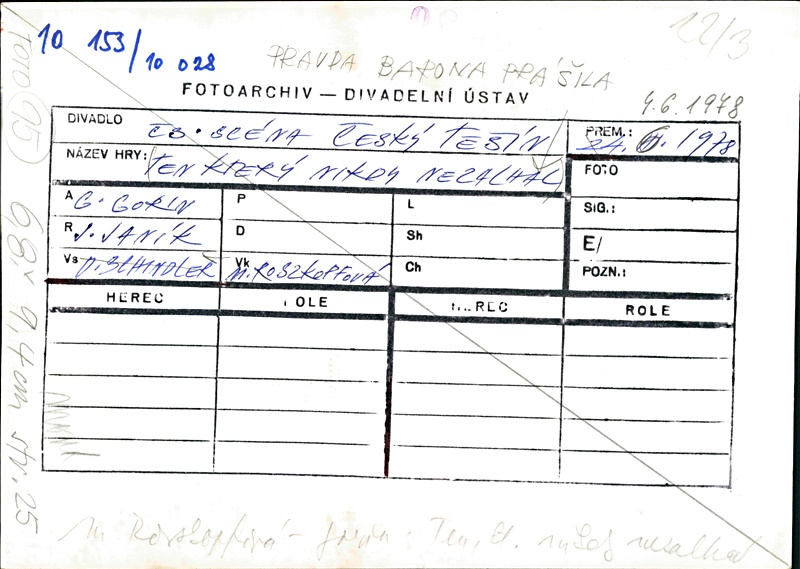 10 153/10 028
22/3
PRAVDA BARONA PRÁŠILA
FOTOARCHIV — DIVADELNÍ ÚSTAV
4.6.1978
DIVADLO ČS. SCÉNA ČESKÝ TĚŠÍN
PREM.: 24. 6. 1978
NÁZEV HRY: TEN KTERÝ NIKDY NEZALHAL
FOTO
A G. GORIN P L
SIG.:
R J. JANÍK D Sh
E/
Vs P. SCHINDLER Vk M. ROSZKOPFOVÁ Ch
POZN.:
HEREC ROLE HEREC ROLE
FOTO (95) 6,8 x 9,4 cm str. 25